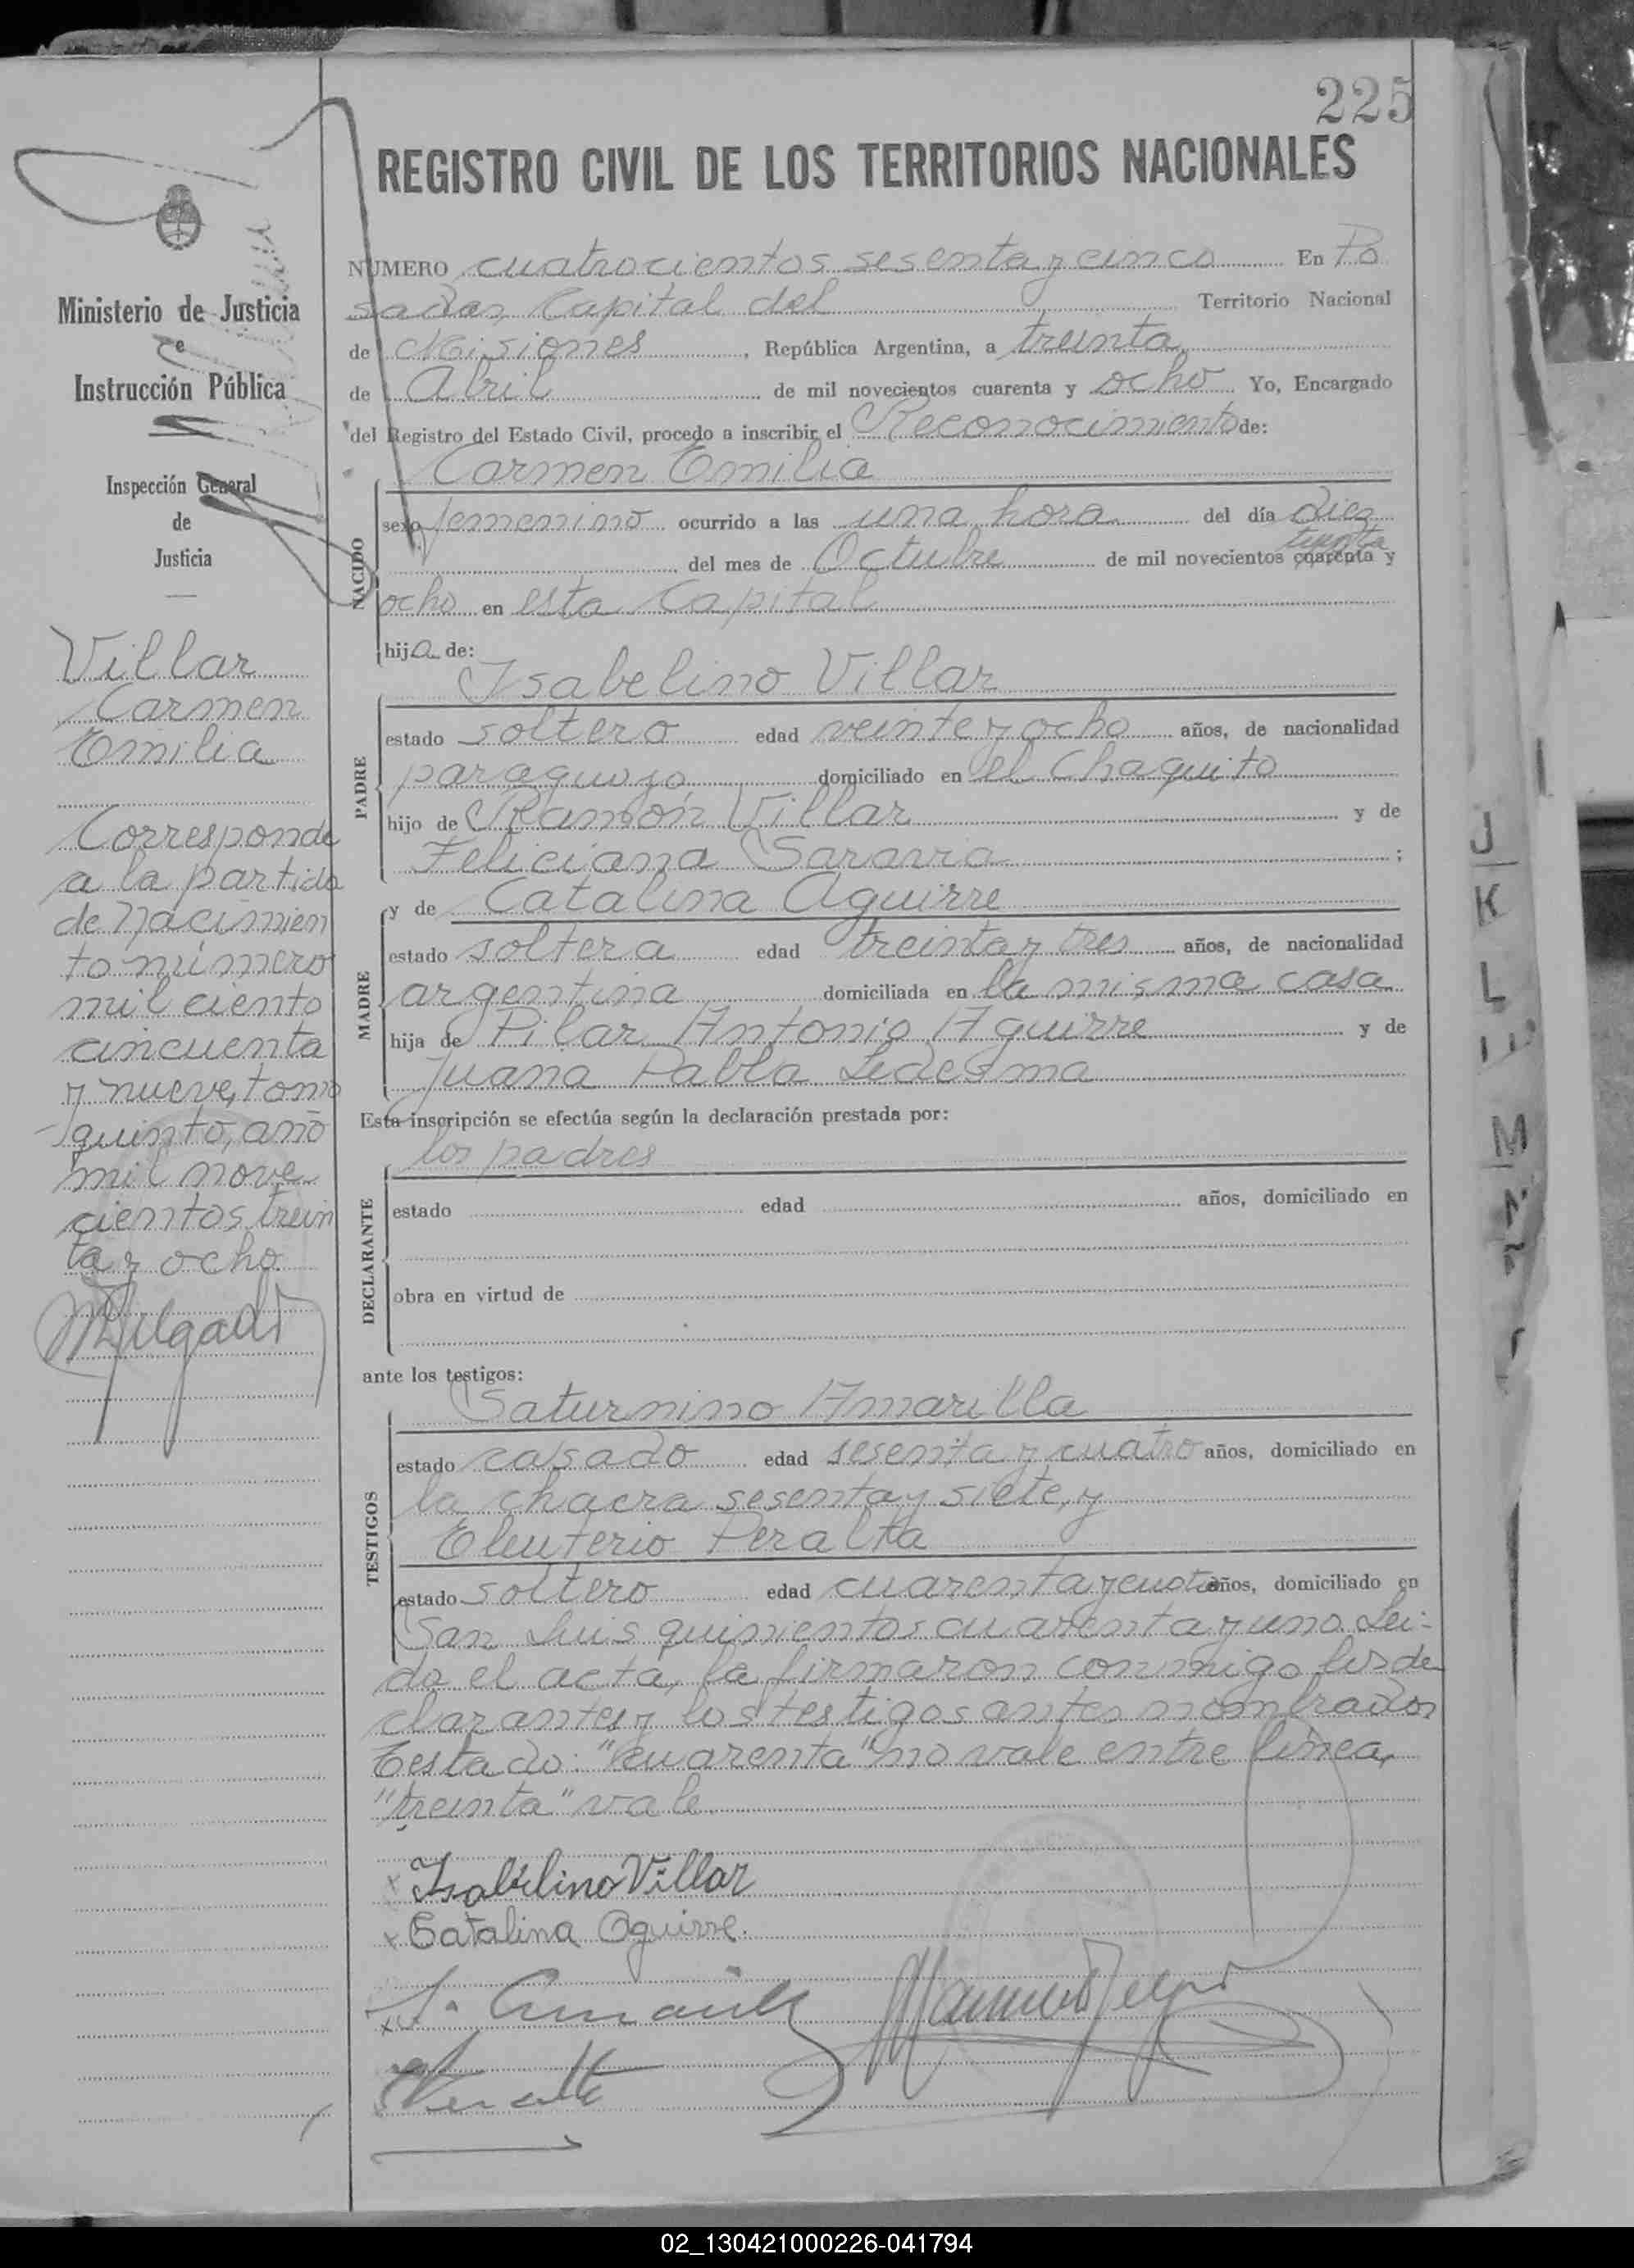 225
REGISTRO CIVIL DE LOS TERRITORIOS NACIONALES
Ministerio de Justicia
e
Instrucción Pública
Inspección General
de
Justicia
Villar
Carmen
Emilia
Corresponde
a la partida
de nacimien
to número
mil ciento
cincuenta
y nueve, tomo
quinto, año
mil nove
cientos trein
ta y ocho
NUMERO cuatrocientos sesenta y cinco En Po
sadas, Capital del Territorio Nacional
de Misiones, República Argentina, a treinta
de Abril de mil novecientos cuarenta y ocho Yo, Encargado
del Registro del Estado Civil, procedo a inscribir el Reconocimiento de:
Carmen Emilia
NACIDO
sexo femenino ocurrido a las una hora del día diez
treinta
del mes de Octubre de mil novecientos cuarenta y
ocho en esta Capital
hija de:
Isabelino Villar
PADRE
estado soltero edad veinte y ocho años, de nacionalidad
paraguayo domiciliado en el Chaquito
hijo de Ramón Villar y de
Feliciana ;
y de Catalina Aguirre
MADRE
estado soltera edad treinta y tres años, de nacionalidad
argentina domiciliada en la misma casa
hija de Pilar Antonio Aguirre y de
Juana Pabla Ledesma
Esta inscripción se efectúa según la declaración prestada por:
los padres
DECLARANTE
estado edad años, domiciliado en
obra en virtud de
ante los testigos:
Saturnino Amarilla
TESTIGOS
estado casado edad sesenta y cuatro años, domiciliado en
la chacra sesenta y siete, y
Eleuterio Peralta
estado soltero edad cuarenta y cuatro años, domiciliado en
San Luis quinientos cuarenta y uno. Lei-
da el acta, la firmaron conmigo los de
clarantes y los testigos antes nombrados
Testado: "cuarenta" no vale entre línea,
"treinta" vale
x Isabelino Villar
x Catalina Aguirre.
J
K
L
M
N
02_130421000226-041794